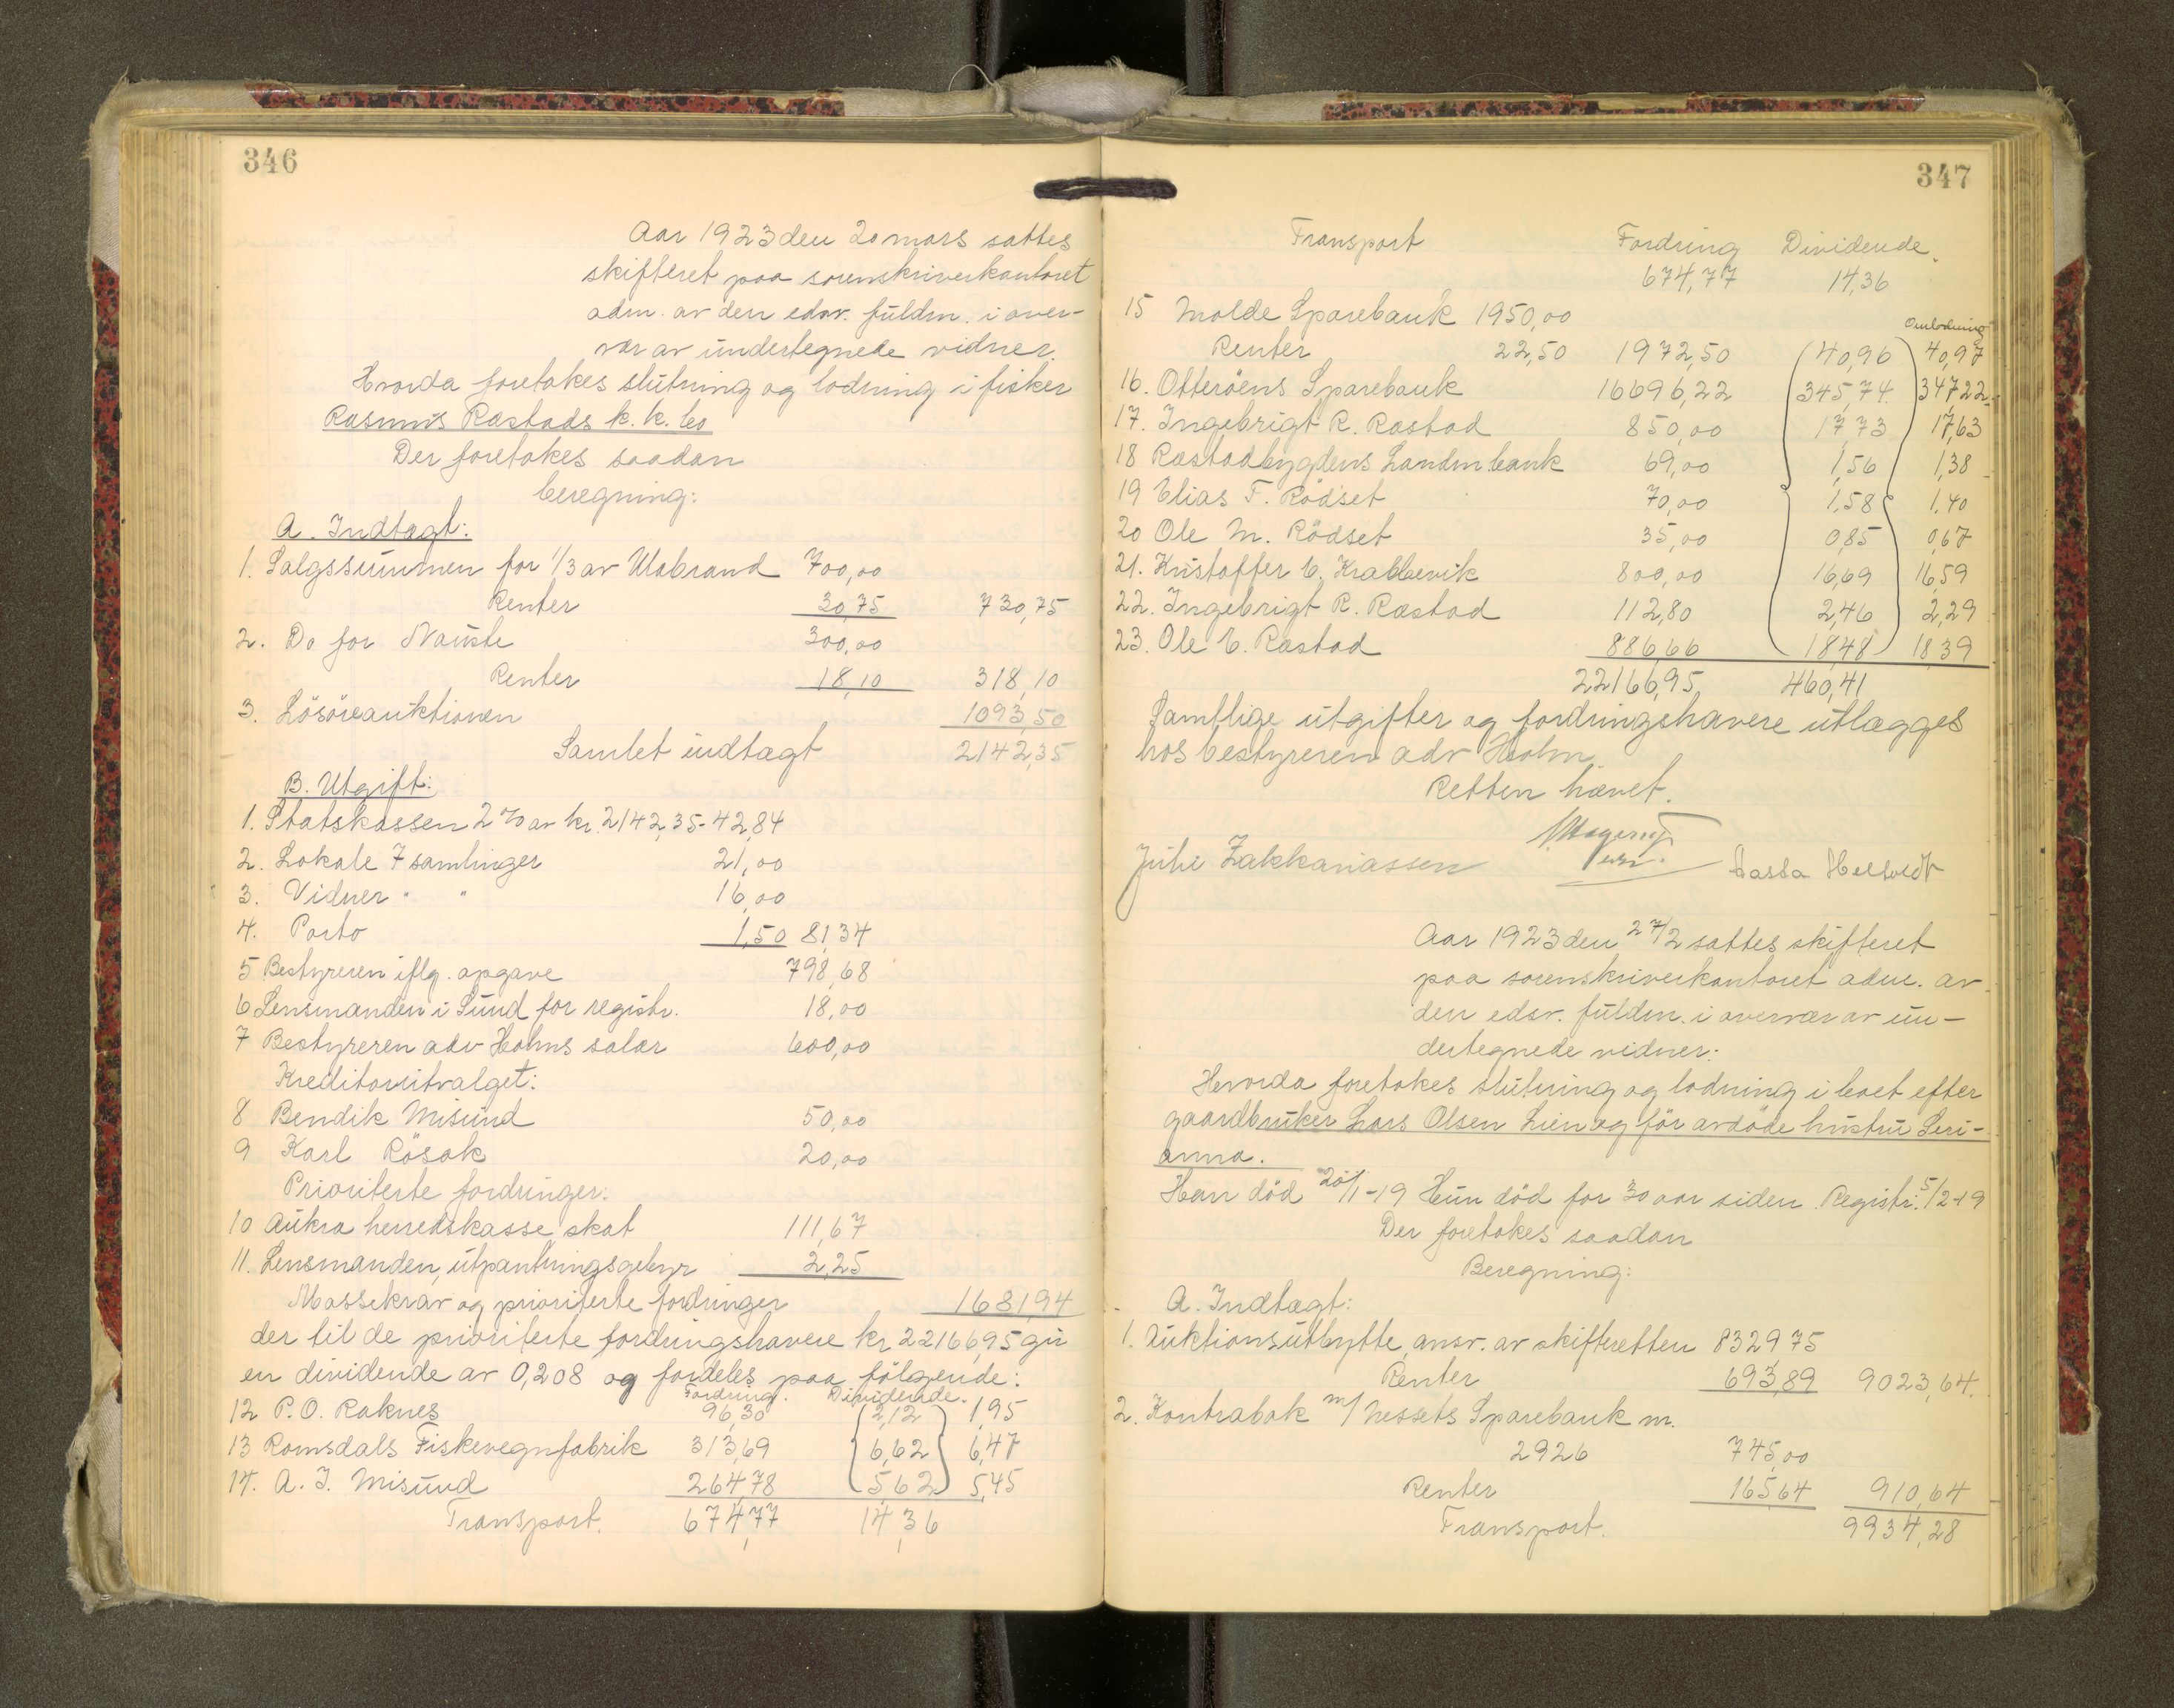 346
Aar 1923 den 20 mars sattes
skifteret paa sorenskriverkontoret
adm. av den edsv. fuldm. i over-
vær av undertegnede vidner.
Hvorda foretokes slutning og lodning i fisker
Rasmus Rastads k. k. bo
Der foretokes saadan
beregning:
A. Indtægt:
1. Salgssummen for 1/3 av Ulabrand 700,00
Renter 30,75 730,75
2. Do for Nauste 300,00
Renter 18,10 318,10
3. Lösöreauktionen 1093,50
Samlet indtægt 2142,35
B. Utgift:
1. Statskassen 2 % av kr. 2142,35 - 42,84
2. Lokale 7 samlinger 21,00
3. Vidner " " 16,00
4. Porto 1,50 81,34
5 Bestyreren iflg. opgave 798,68
6 Lensmanden i Sund for registr. 18,00
7 Bestyreren adv Holms salær 600,00
Kreditorutvalget:
8 Bendik Misund 50,00
9 Karl Rösok 20,00
Prioriterte fordringer:
10 Aukra herredskasse, skat 111,67
11. Lensmanden, utpantningsgebyr 2,25
Massekrav og prioriterte fordringer 1681,94
der til de prioriterte fordringshavere kr 22166,95 gir
en dividende av 0,208 og fordeles paa følgende:
Fordring. Dividende.
12 P. O. Raknes 96,30 2,12 1,95
13 Romsdals Fiskevegnfabrik 313,69 6,62 6,47
14. A. J. Misund 264,78 5,62 5,45
Transport. 674,77 14,36
347
Transport Fordring Dividende.
674,77 14,36
15 Molde Sparebank 1950,00
Omlodning
Renter 22,50 1972,50 40,96 40,97
16. Otteröens Sparebank 16696,22 345,74 347,22
17. Ingebrigt R. Rastad 850,00 17,73 17,63
18 Rastadbygdens Landm bank 69,00 1,56 1,38
19 Elias F. Rödset 70,00 1,58 1,40
20 Ole M. Rödset 35,00 0,85 0,67
21. Kristoffer E. Krabbevik 800,00 16,69 16,59
22. Ingebrigt R. Rastad 112,80 2,46 2,29
23. Ole E. Rastad 886,66 18,48 18,39
22166,95 460,41
Samtlige utgifter og fordringshavere utlægges
hos bestyreren adv Holm.
Retten hævet.
Julie Zakkariassen
Aar 1923 den 27/2 sattes skifteret
paa sorenskriverkontoret adm. av
den edsv. fuldm. i overvær av un-
dertegnede vidner:
Hvorda foretokes slutning og lodning i boet efter
gaardbruker Lars Olsen Lien og før avdöde hustru Seri-
anna.
Han död 20/1-19 Hun död for 30 aar siden. Registr: 5/2-19
Der foretokes saadan
Beregning:
A. Indtægt:
1. Auktionsutbytte, ansv. av skifteretten 8329 75
Renter 693,89 9023,64.
2. Kontrabok m/ Nessets Sparebank nr.
2926 745,00
Renter 165,64 910,64
Transport. 9934,28